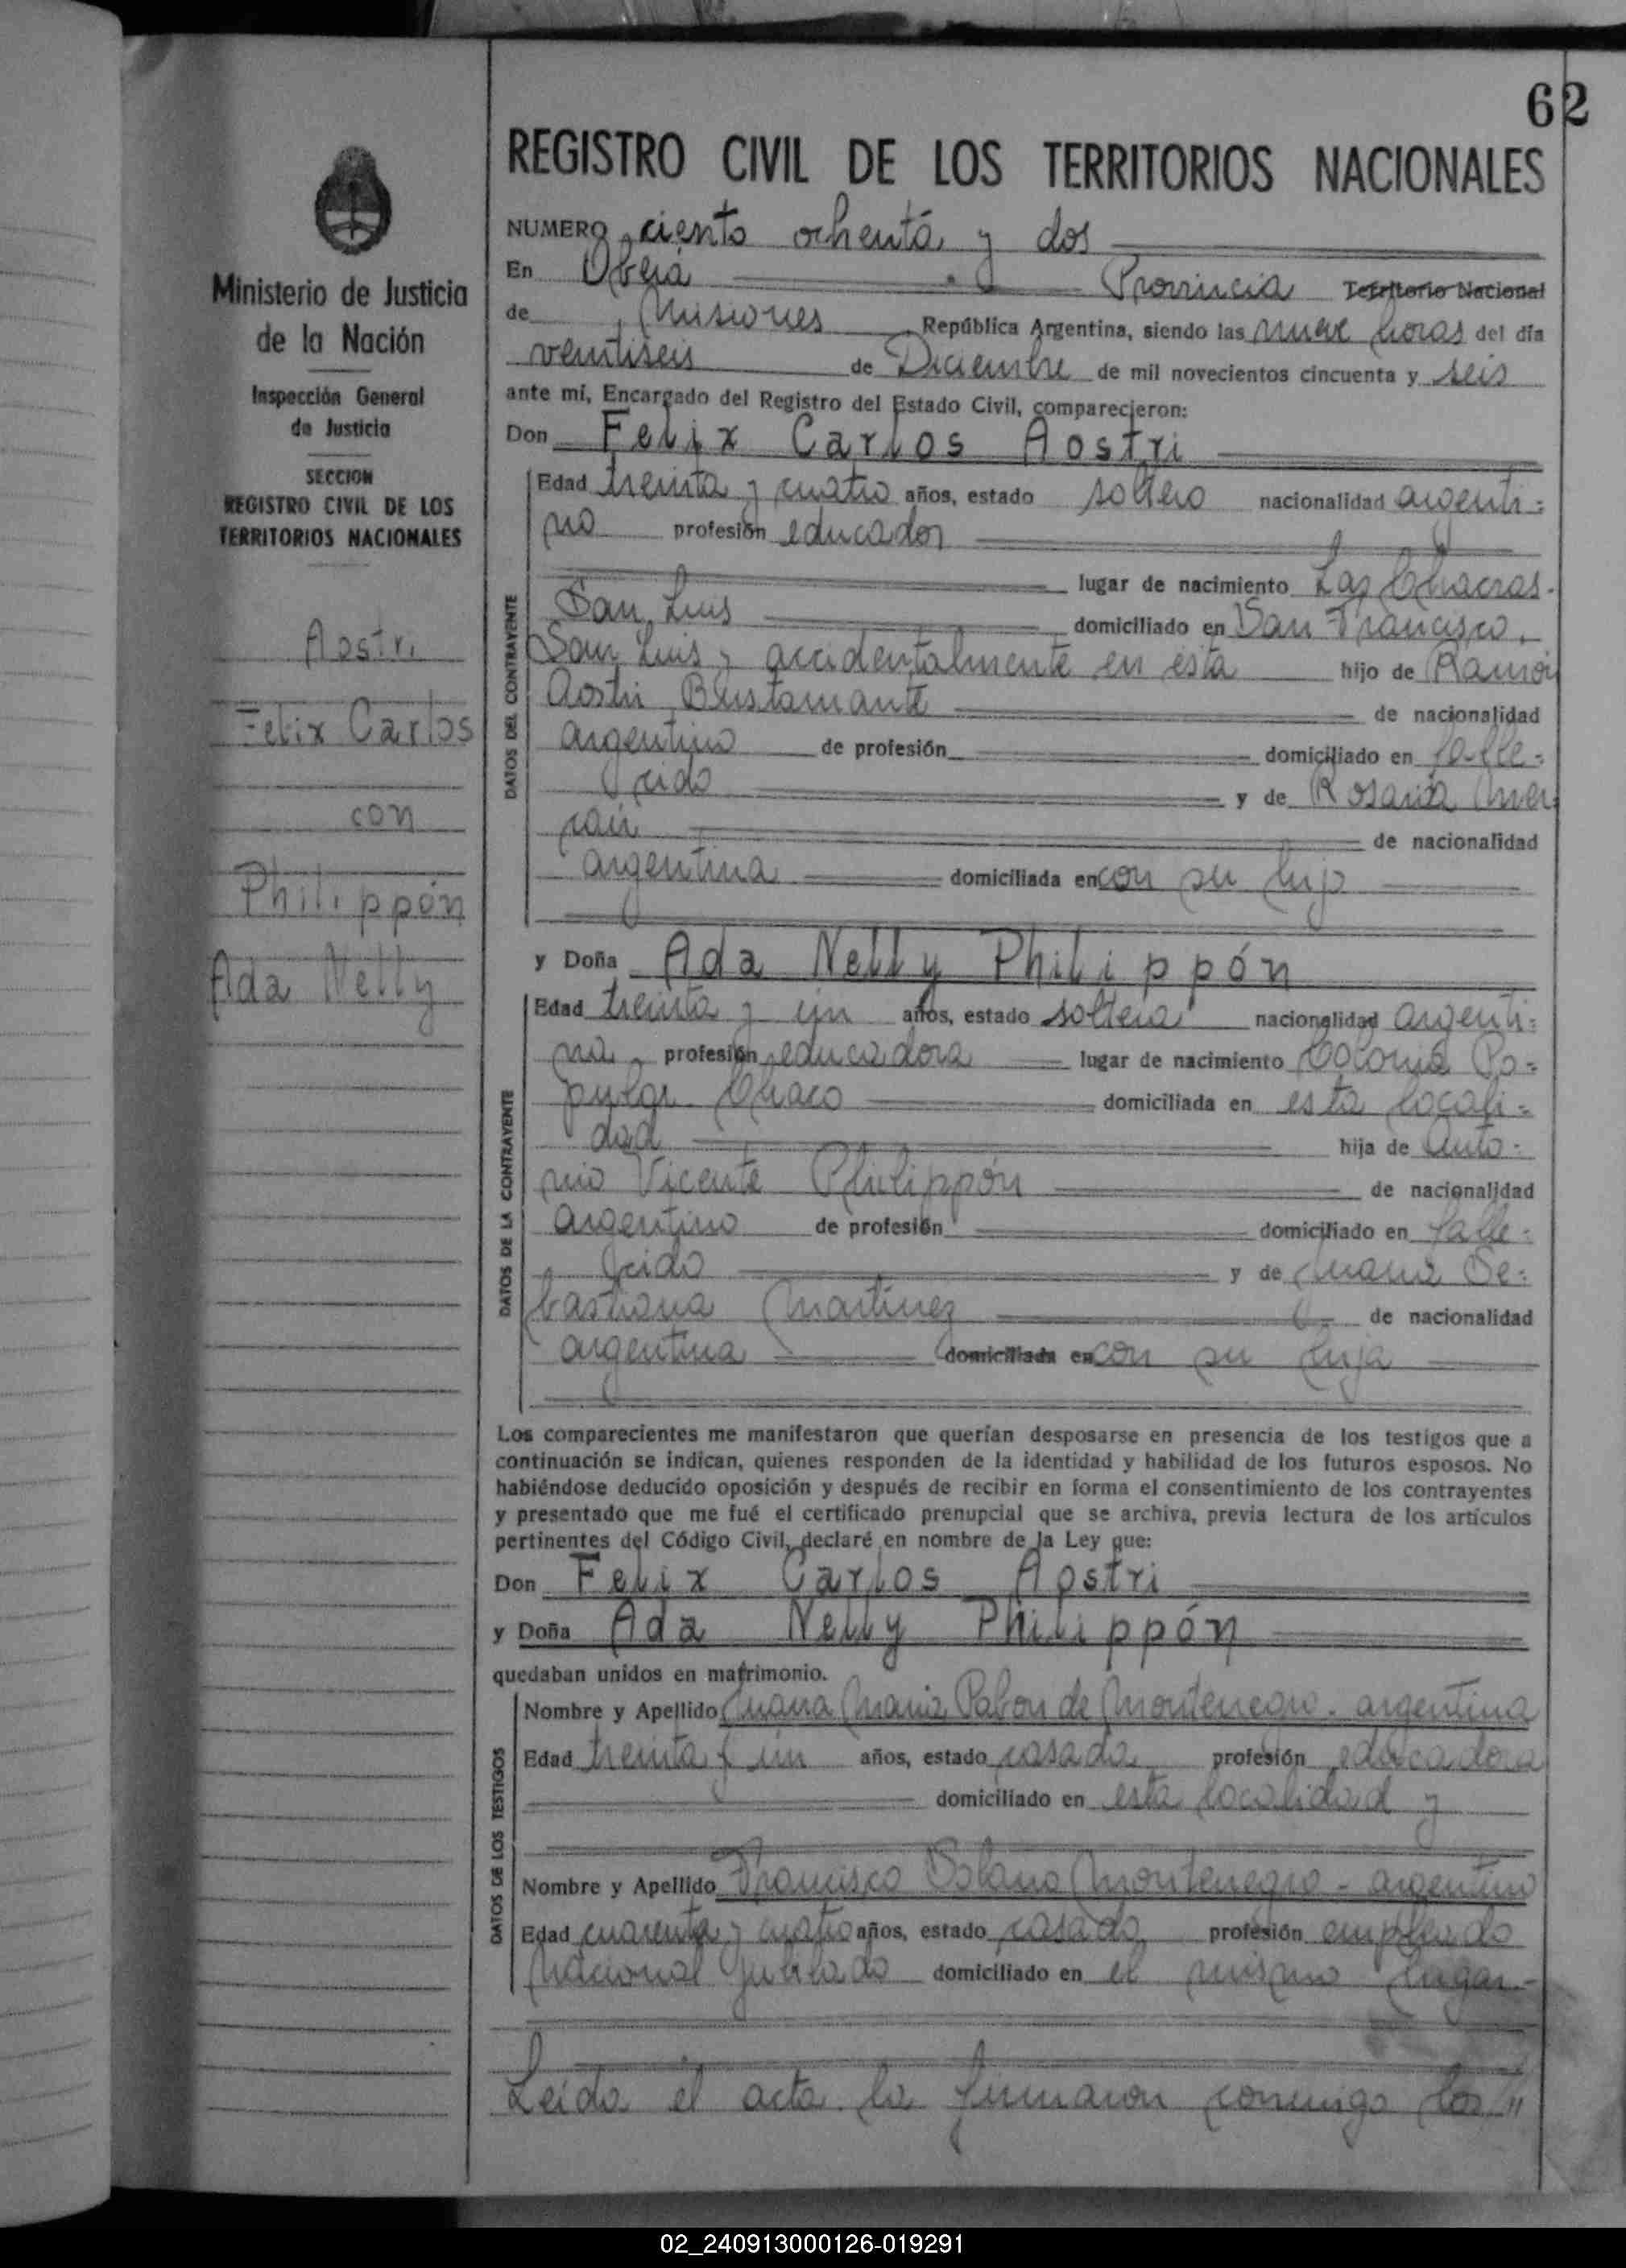 62
REGISTRO CIVIL DE LOS TERRITORIOS NACIONALES
Ministerio de Justicia
de la Nación
Inspección General
de Justicia
SECCION
REGISTRO CIVIL DE LOS
TERRITORIOS NACIONALES
Aostri
Felix Carlos
con
Philippón
Ada Nelly
NUMERO ciento ochenta y dos
En Oberá Provincia Territorio Nacional
de Misiones República Argentina, siendo las nueve horas del día
veintiseis de Diciembre de mil novecientos cincuenta y seis
ante mí, Encargado del Registro del Estado Civil, comparecieron:
Don Felix Carlos Aostri
DATOS DEL CONTRAYENTE
Edad treinta y cuatro años, estado soltero nacionalidad argenti=
no profesión educador
lugar de nacimiento Las Chacras-
San Luis domiciliado en San Francisco,
San Luis y accidentalmente en ésta hijo de Ramón
Aostri Bustamante de nacionalidad
argentino de profesión domiciliado en falle=
cido y de Rosaria
de nacionalidad
argentina domiciliada en con su hijo
y Doña Ada Nelly Philippón
DATOS DE LA CONTRAYENTE
Edad treinta y un años, estado soltera nacionalidad argenti=
na, profesión educadora lugar de nacimiento Colonia Po=
pular Chaco domiciliada en esta locali=
dad hija de Anto=
nio Vicente Philippón de nacionalidad
argentino de profesión domiciliado en falle=
cido y de Juana Se=
bastiana Martinez de nacionalidad
argentina domiciliada en con su hija
Los comparecientes me manifestaron que querían desposarse en presencia de los testigos que a
continuación se indican, quienes responden de la identidad y habilidad de los futuros esposos. No
habiéndose deducido oposición y después de recibir en forma el consentimiento de los contrayentes
y presentado que me fué el certificado prenupcial que se archiva, previa lectura de los artículos
pertinentes del Código Civil, declaré en nombre de la Ley que:
Don Felix Carlos Aostri
y Doña Ada Nelly Philippón
quedaban unidos en matrimonio.
DATOS DE LOS TESTIGOS
Nombre y Apellido Juana Maria Pabon de Montenegro - argentina
Edad treinta y un años, estado casada profesión educadora
domiciliado en esta localidad y
Nombre y Apellido Francisco Solano Montenegro - argentino
Edad cuarenta y cuatro años, estado casado profesión empleado
Nacional Jubilado domiciliado en el mismo lugar-
Leída el acta la firmaron conmigo los "
02_240913000126-019291